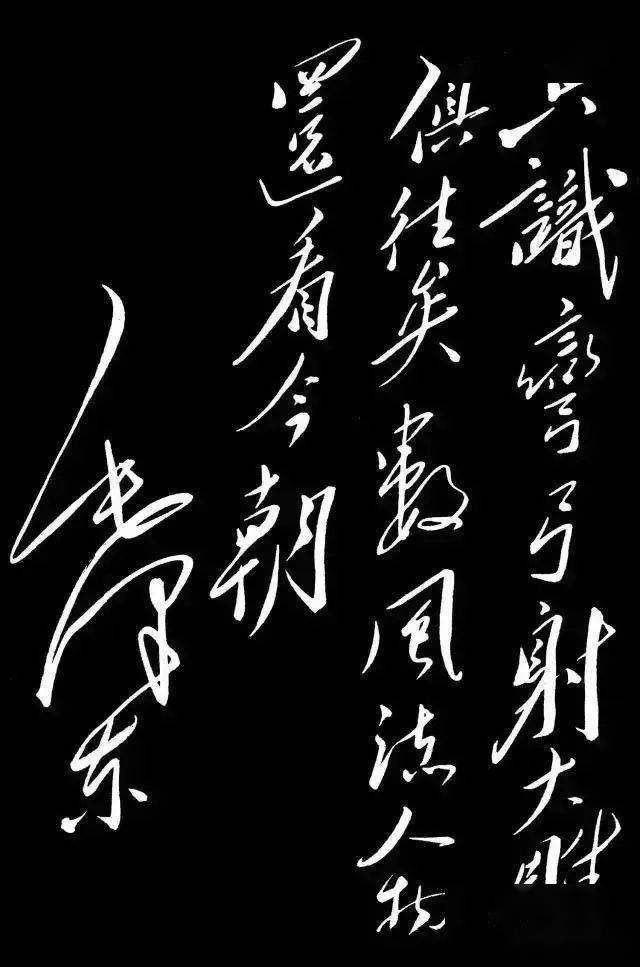 只識彎弓射大雕
俱往矣數風流人物
還看今朝
毛泽东